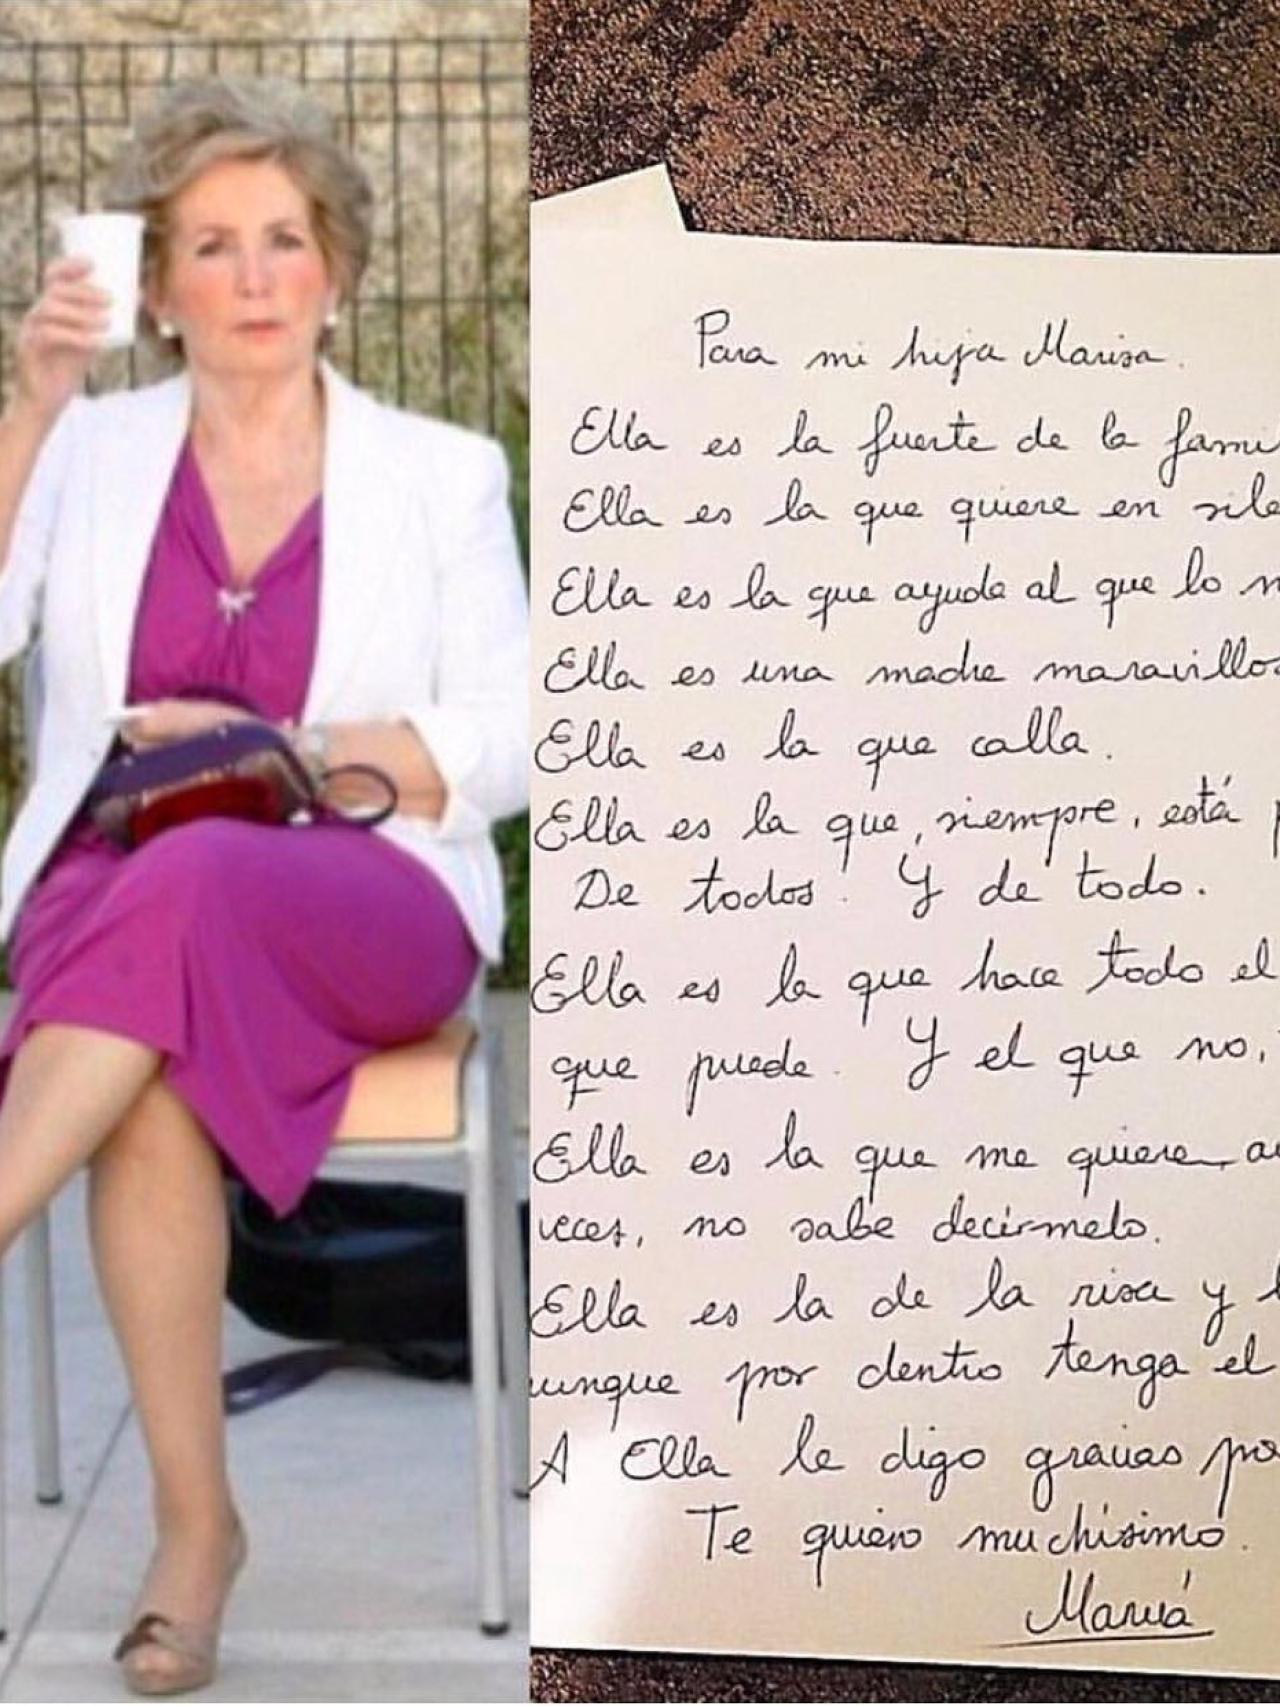 Para mi hija Marisa.
Ella es la fuerte de la fami
Ella es la que quiere en sile
Ella es la que ayuda al que lo n
Ella es una madre maravillos
Ella es la que calla.
Ella es la que, siempre, está p
De todos. Y de todo.
Ella es la que hace todo el
que puede. Y el que no,
Ella es la que me quiere au
veces, no sabe decírmelo.
Ella es la de la risa y l
unque por dentro tenga el
A Ella le digo gracias po
Te quiero muchísimo.
Mamá